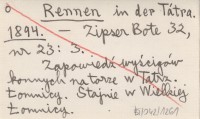 Rennen in der Tátra.
1894. — Zipser Bote 32,
nr 23: 3.
Zapowiedź wyścigów
konnych na torze w Tatrz.
Łomnicy. Stajnie w Wielkiej
Łomnicy.